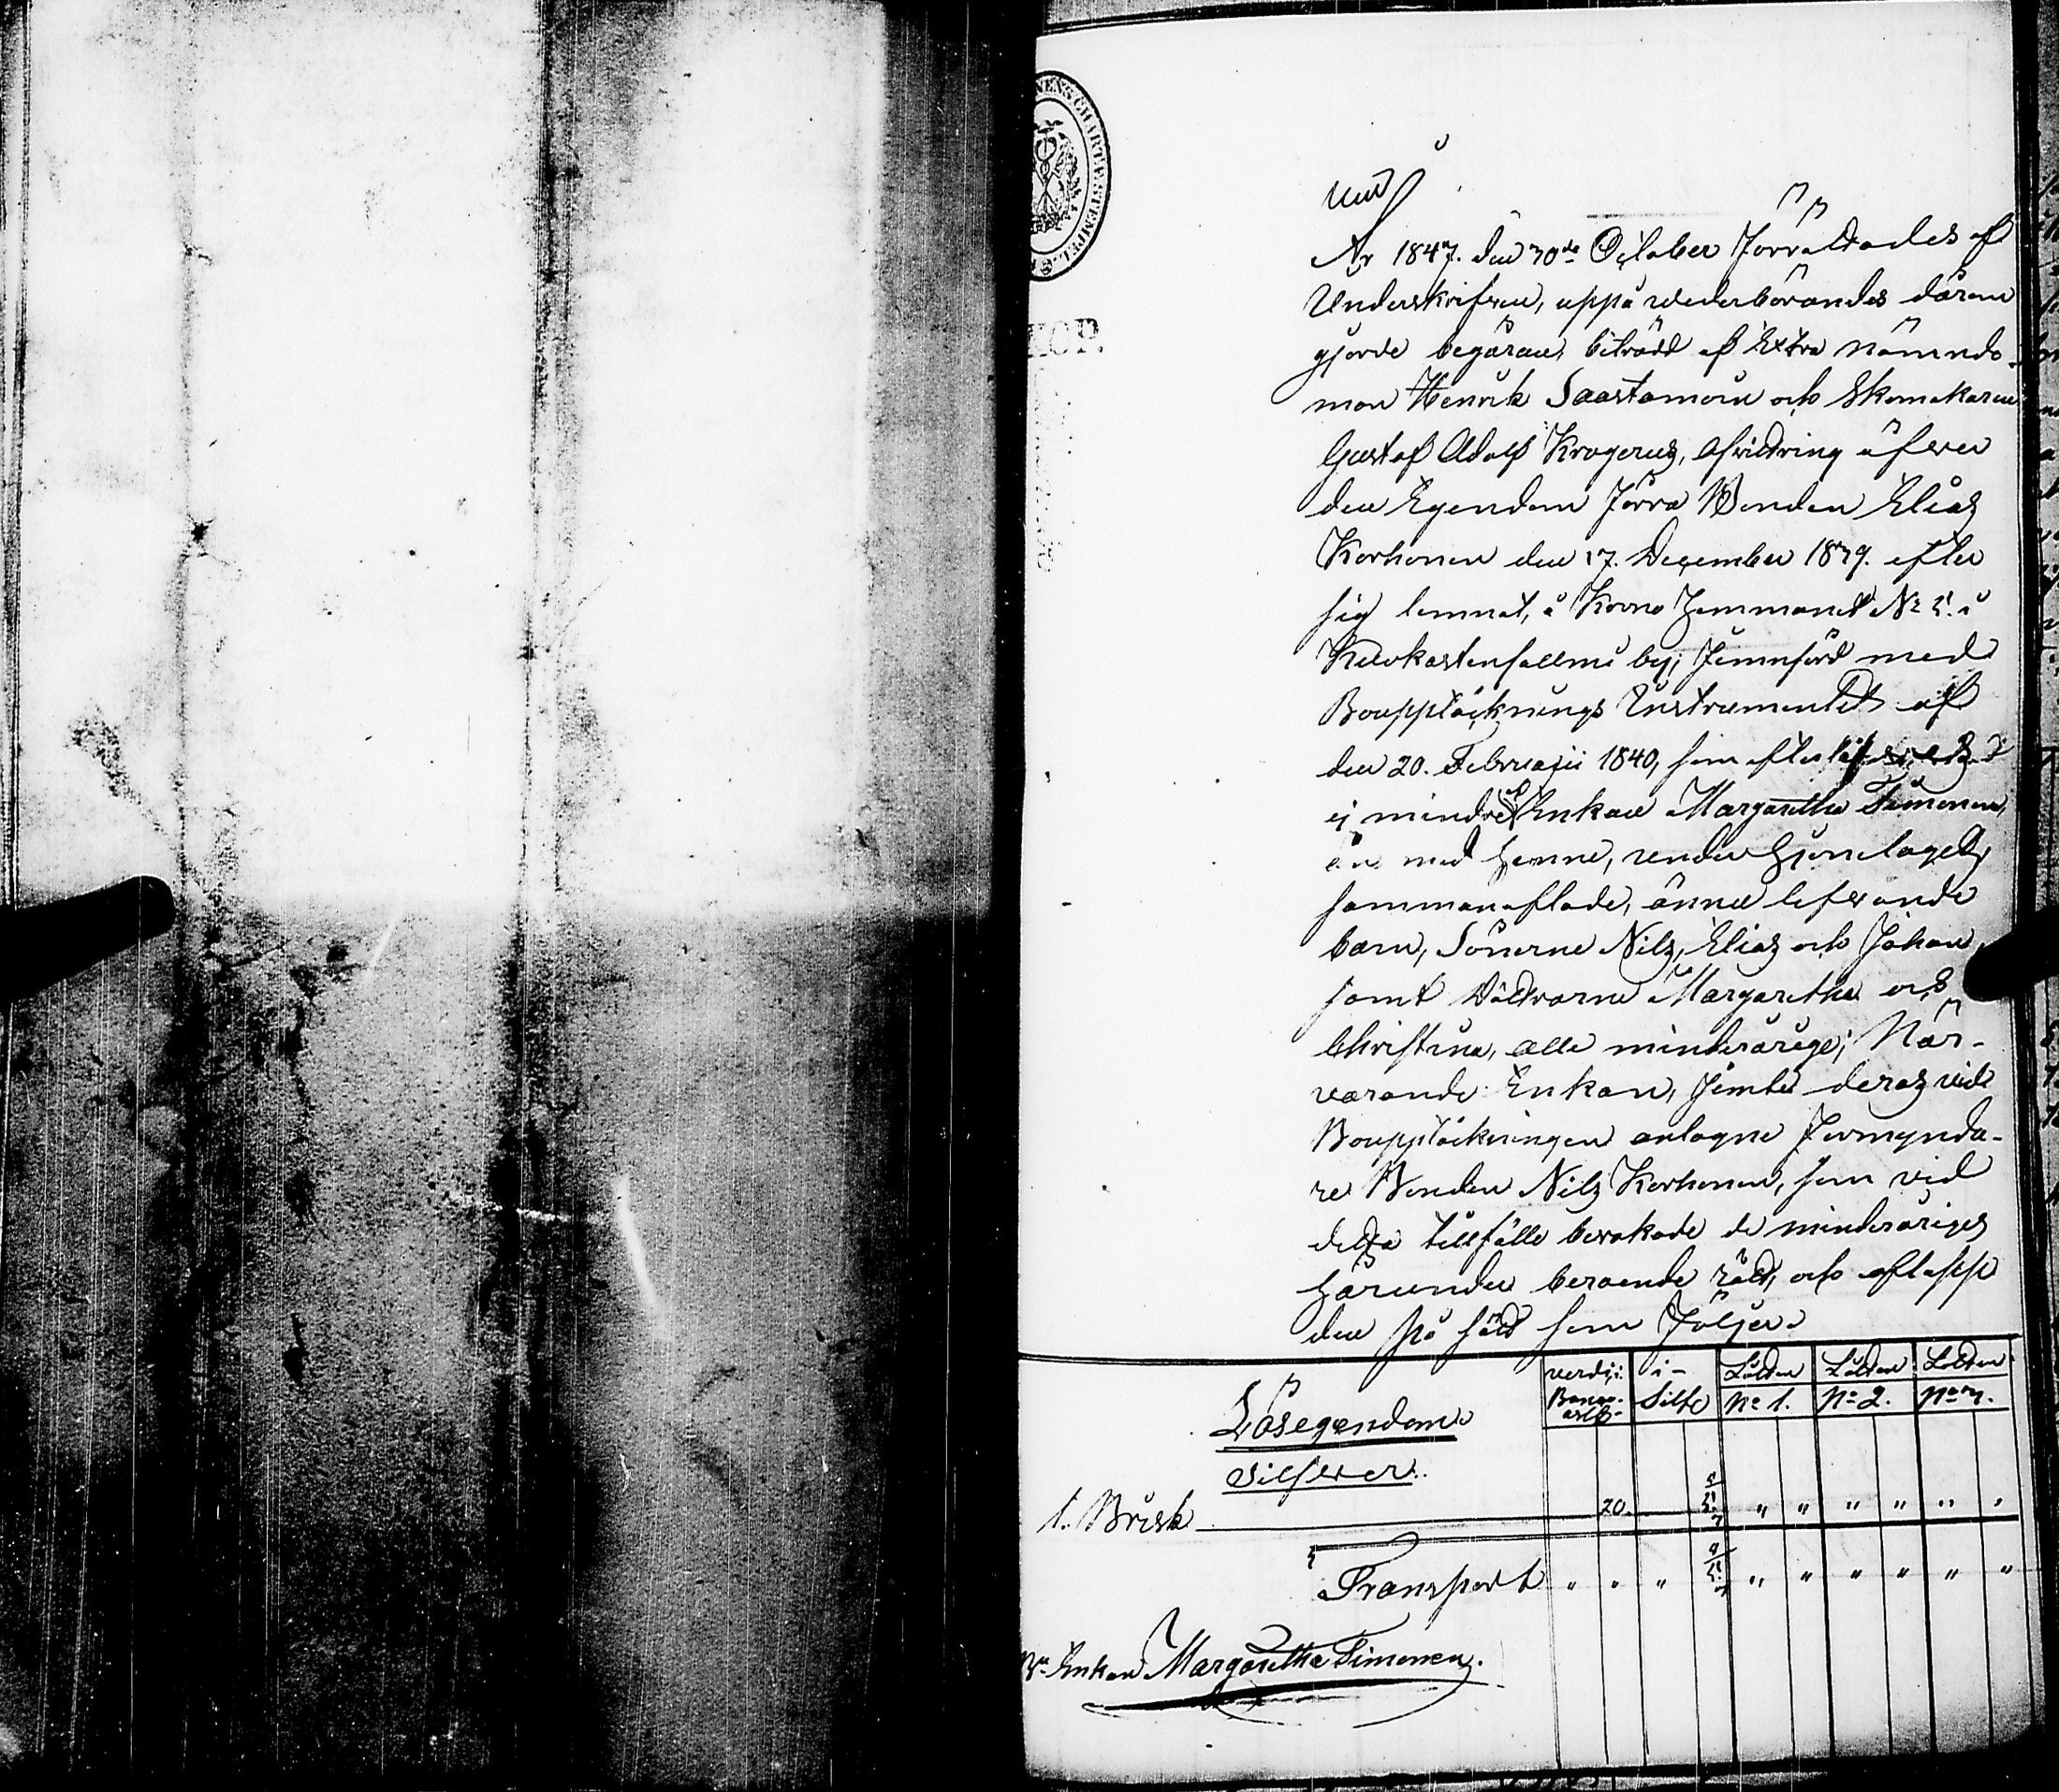 NENS CHARTÆ STEMPEL. S
KOP.
År 1847. den 30de October förrättades af
Underskrifven, uppå wederbörandes därom
gjorde begäran, biträdd af Extra nämnde-
man Henrik Saastamoin och Skomakaren
Gustaf Adolf Krogerus, Afvittring öfver
den Egendom förra Bonden Elias
Korhonen den 17. December 1839. efter
sig lemnat, å Krono Hemmanet No 5. i
by; jemnförd med
Boupptäcknings Instrumentet af
den 20. Februarii 1840, som
ej mindre Enkan Margaretha Timonen,
än med henne, under hjonelaget,
sammanaflade, ännu lefvande
barn, Sönerne Nils, Elias och Johan
samt Döttrarne Margaretha och
Christina, alle minderårige; När-
varande Enkan, jemte deras vid
Boupptäckningen antagne Förmynda-
re Bonden Nils Korhonen, som vid
detta tillfälle bevakade de minderåriges
härunder beroende rätt, och aflopp
den på sätt som följer.
Lösegendom
verdi i Banco assig.
i Silfr
Lotten No 1.
Lotten No 2.
Lotten No 3.
Silfver.
1. Brisk 20. 5 5/7 " " " " " "
Transport " " " 5 5/7 " " " " " "
Enkan Margaretha Timonen.